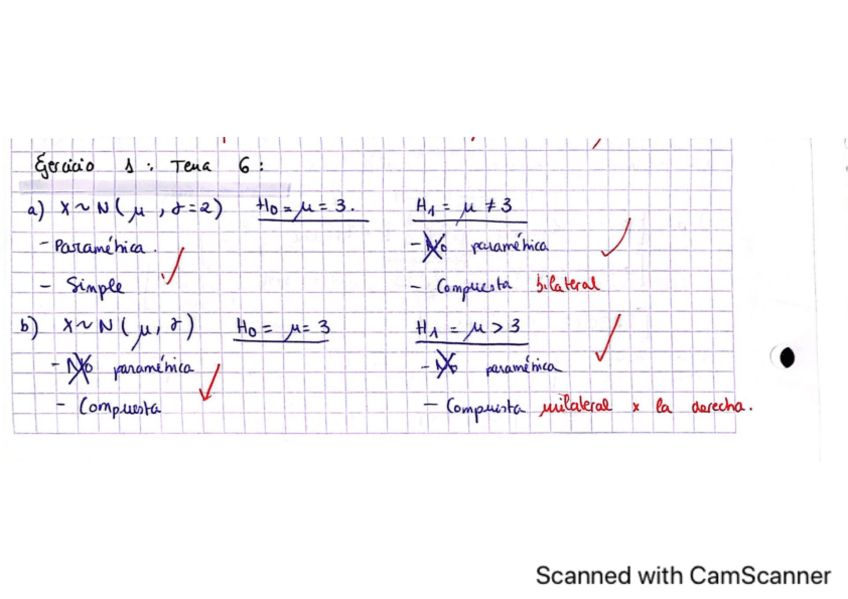 Ejercicio 1: Tema 6:
a) X~N(μ, σ=2) H0 = μ = 3. H1 = μ ≠ 3
- Paramétrica. - No paramétrica
- Simple - Compuesta bilateral
b) X~N(μ, σ) H0 = μ = 3 H1 = μ > 3
- No paramétrica - No paramétrica
- Compuesta - Compuesta unilateral x la derecha.
Scanned with CamScanner